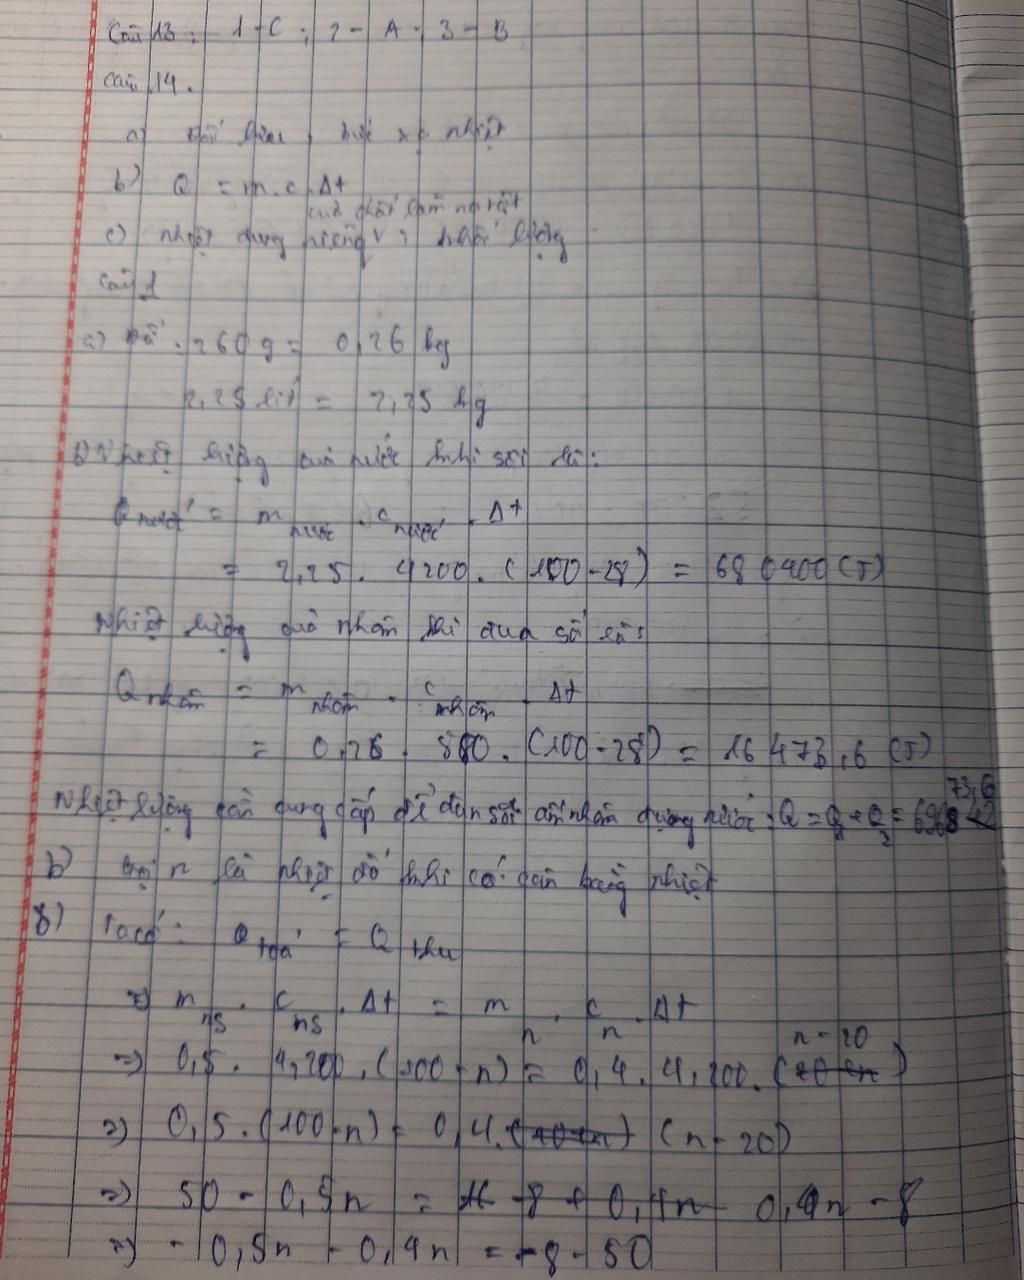 Câu 13: 1-C; 2-A; 3-B
Câu 14.
a) đối lưu, bức xạ nhiệt
b) Q = m.c.Δt
của chất làm nên vật
c) nhiệt dung riêng ; khối lượng
Câu 1
a) Đổi 260g = 0,26 kg
2,25 lít = 2,25 kg
Nhiệt lượng của nước khi sôi là:
Q nước = m nước . c nước . Δt
= 2,25. 4200. (100-28) = 680400 (J)
Nhiệt lượng của nhôm khi đun sôi là:
Q nhôm = m nhôm . c nhôm . Δt
= 0,26. 880. (100-28) = 16473,6 (J)
Nhiệt lượng cần cung cấp để đun sôi ấm nhôm đựng nước: Q = Q1 + Q2 = 69687 73,6
b) Gọi n là nhiệt độ khi có cân bằng nhiệt
Ta có: Q toả = Q thu
=> m ns . c ns . Δt = m n . c n . Δt
=> 0,5. 4,200. (100-n) = 0,4. 4,200. (n-20)
=> 0,5.(100-n) = 0,4. (n-20)
=> 50 - 0,5n = 0,4n - 8
=> -0,5n - 0,4n = -8 - 50